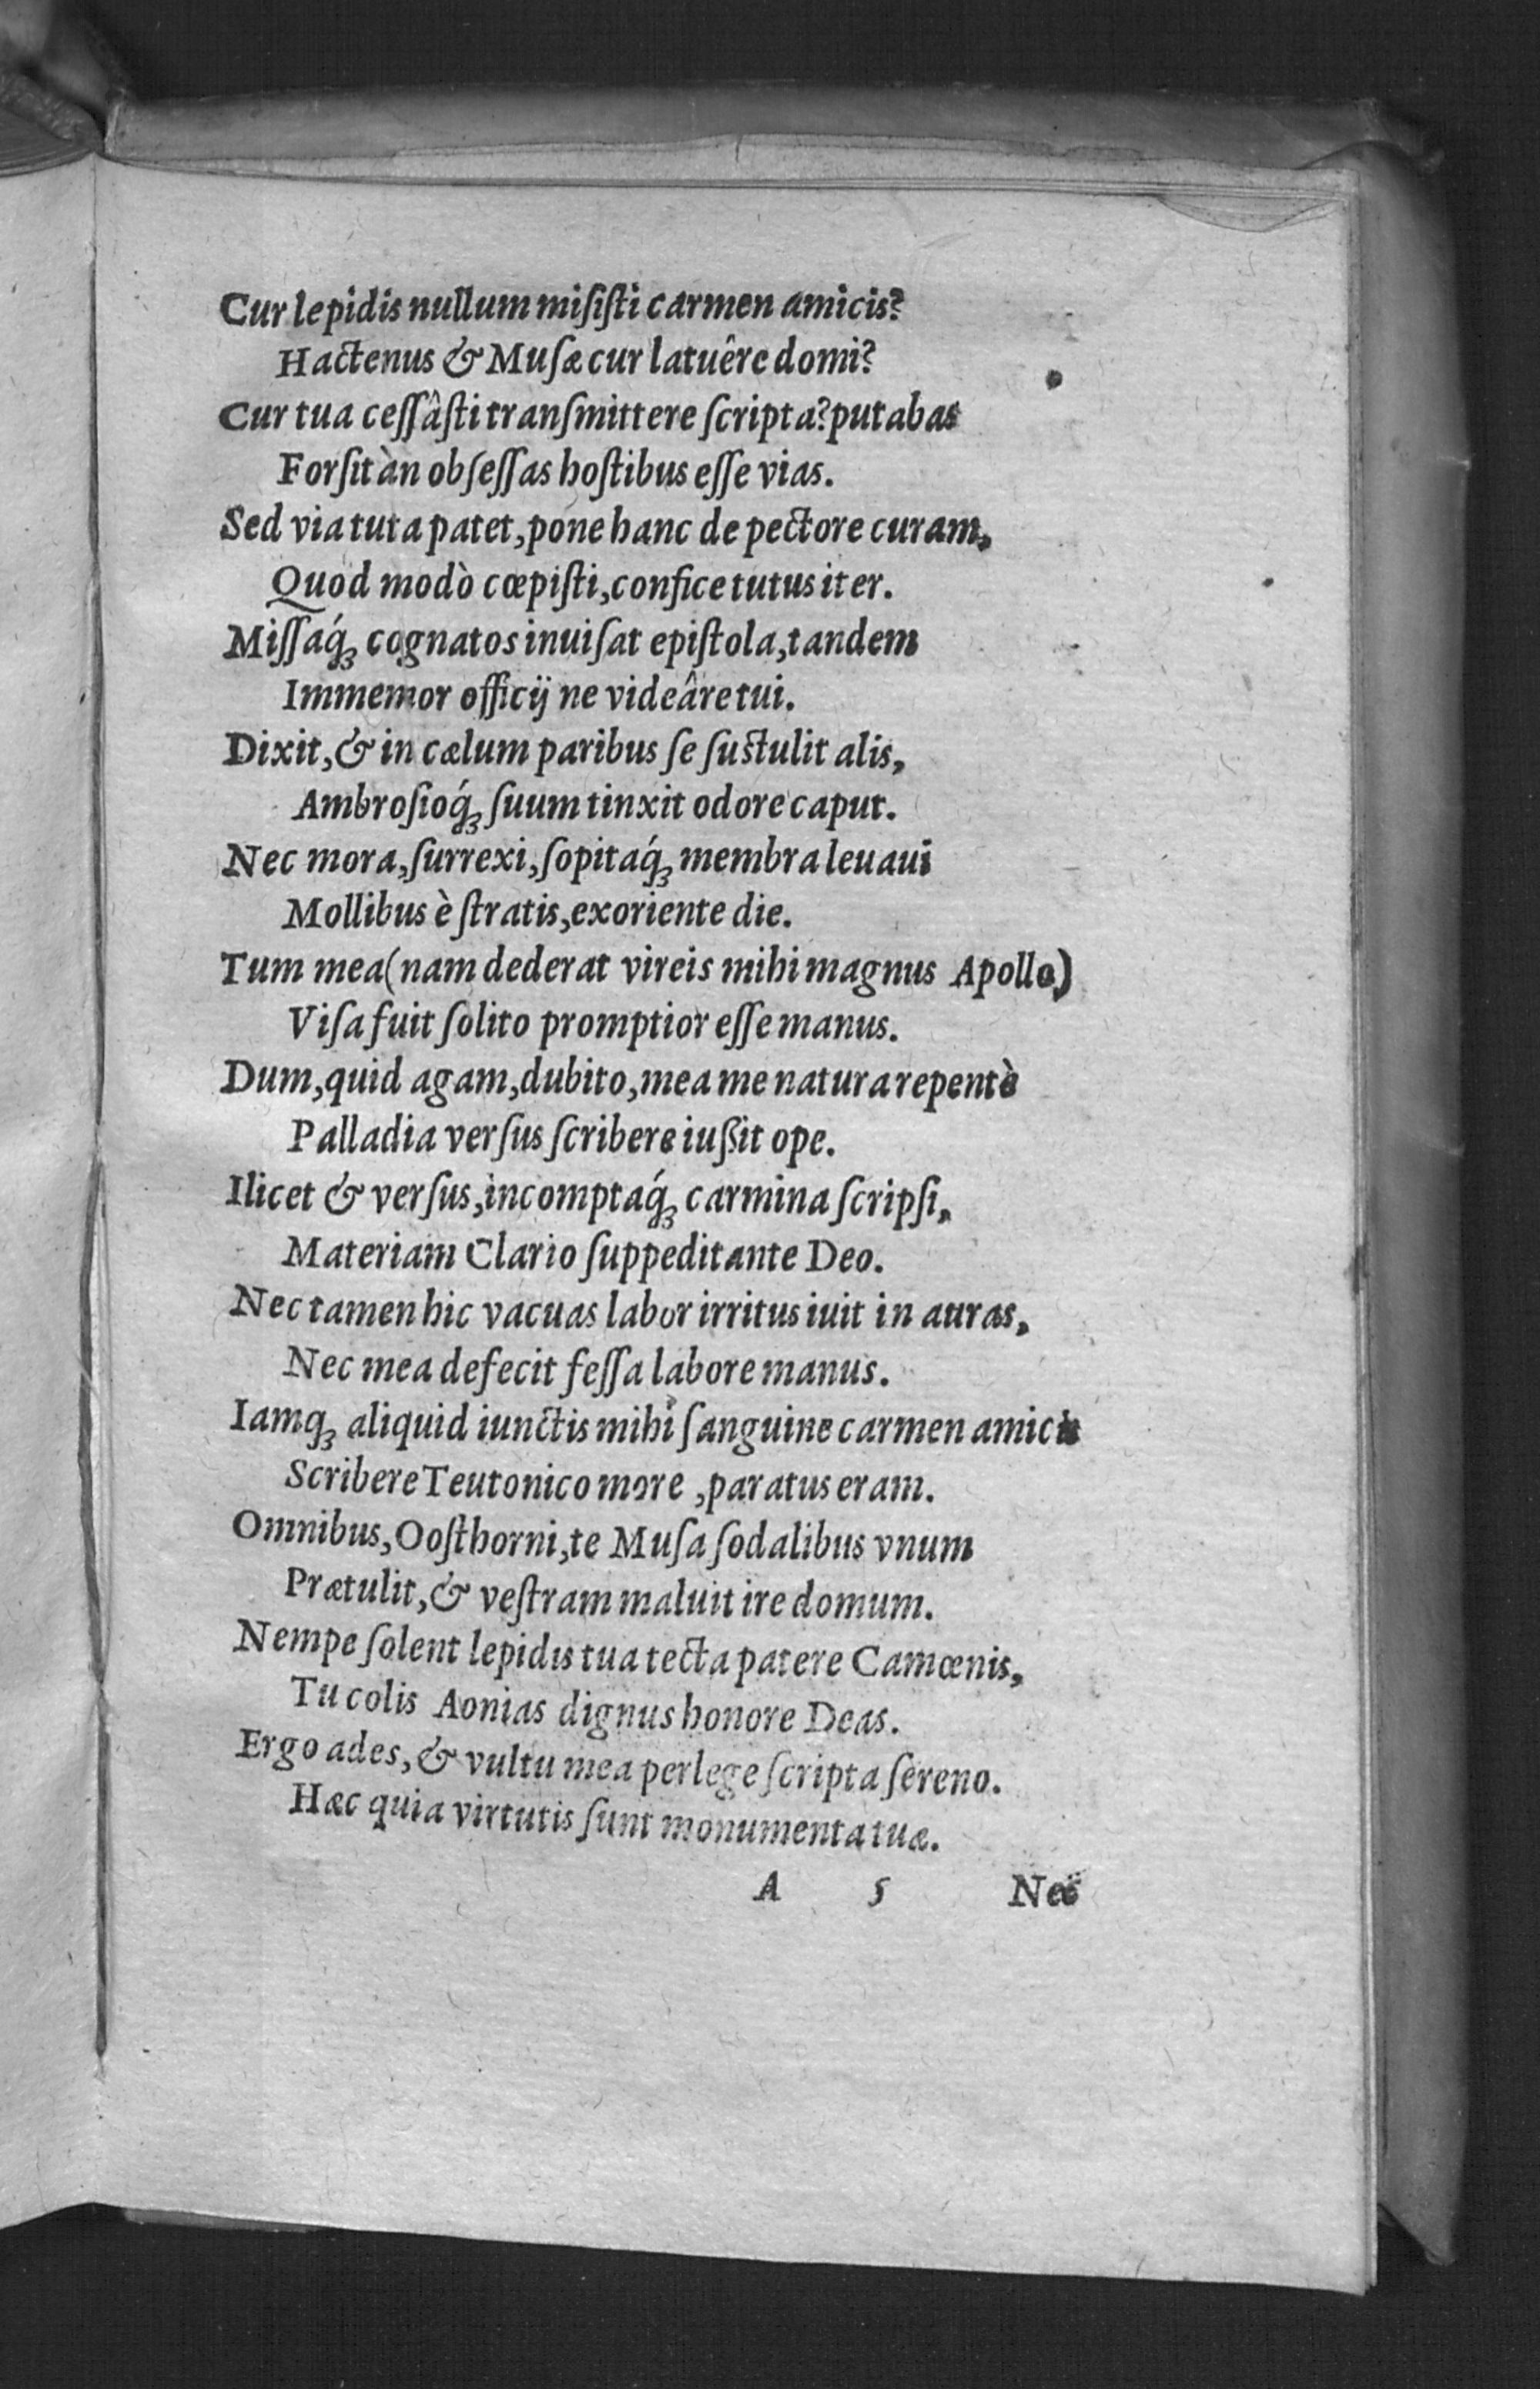 Cur lepidis nullum misisti carmen amicis?
Hactenus & Musæ cur latuêre domi?
Cur tua cessâsti transmittere scripta? putabas
Forsitàn obsessas hostibus esse vias.
Sed via tuta patet, pone hanc de pectore curam,
Quod modò cœpisti, confice tutus iter.
Missaq́ꝫ cognatos inuisat epistola, tandem
Immemor officij ne videâre tui.
Dixit, & in cælum paribus se sustulit alis,
Ambrosioq́ꝫ suum tinxit odore caput.
Nec mora, surrexi, sopitaq́ꝫ membra leuaui
Mollibus è stratis, exoriente die.
Tum mea (nam dederat vireis mihi magnus Apollo)
Visa fuit solito promptior esse manus.
Dum, quid agam, dubito, mea me natura repentè
Palladia versus scribere iußit ope.
Ilicet & versus, incomptaq́ꝫ carmina scripsi,
Materiam Clario suppeditante Deo.
Nec tamen hic vacuas labor irritus iuit in auras,
Nec mea defecit fessa labore manus.
Iamqꝫ aliquid iunctis mihi sanguine carmen amicis
Scribere Teutonico more, paratus eram.
Omnibus, Oosthorni, te Musa sodalibus vnum
Prætulit, & vestram maluit ire domum.
Nempe solent lepidis tua tecta patere Camœnis,
Tu colis Aonias dignus honore Deas.
Ergo ades, & vultu mea perlege scripta sereno.
Hæc quia virtutis sunt monumenta tuæ.
A 5 Nec